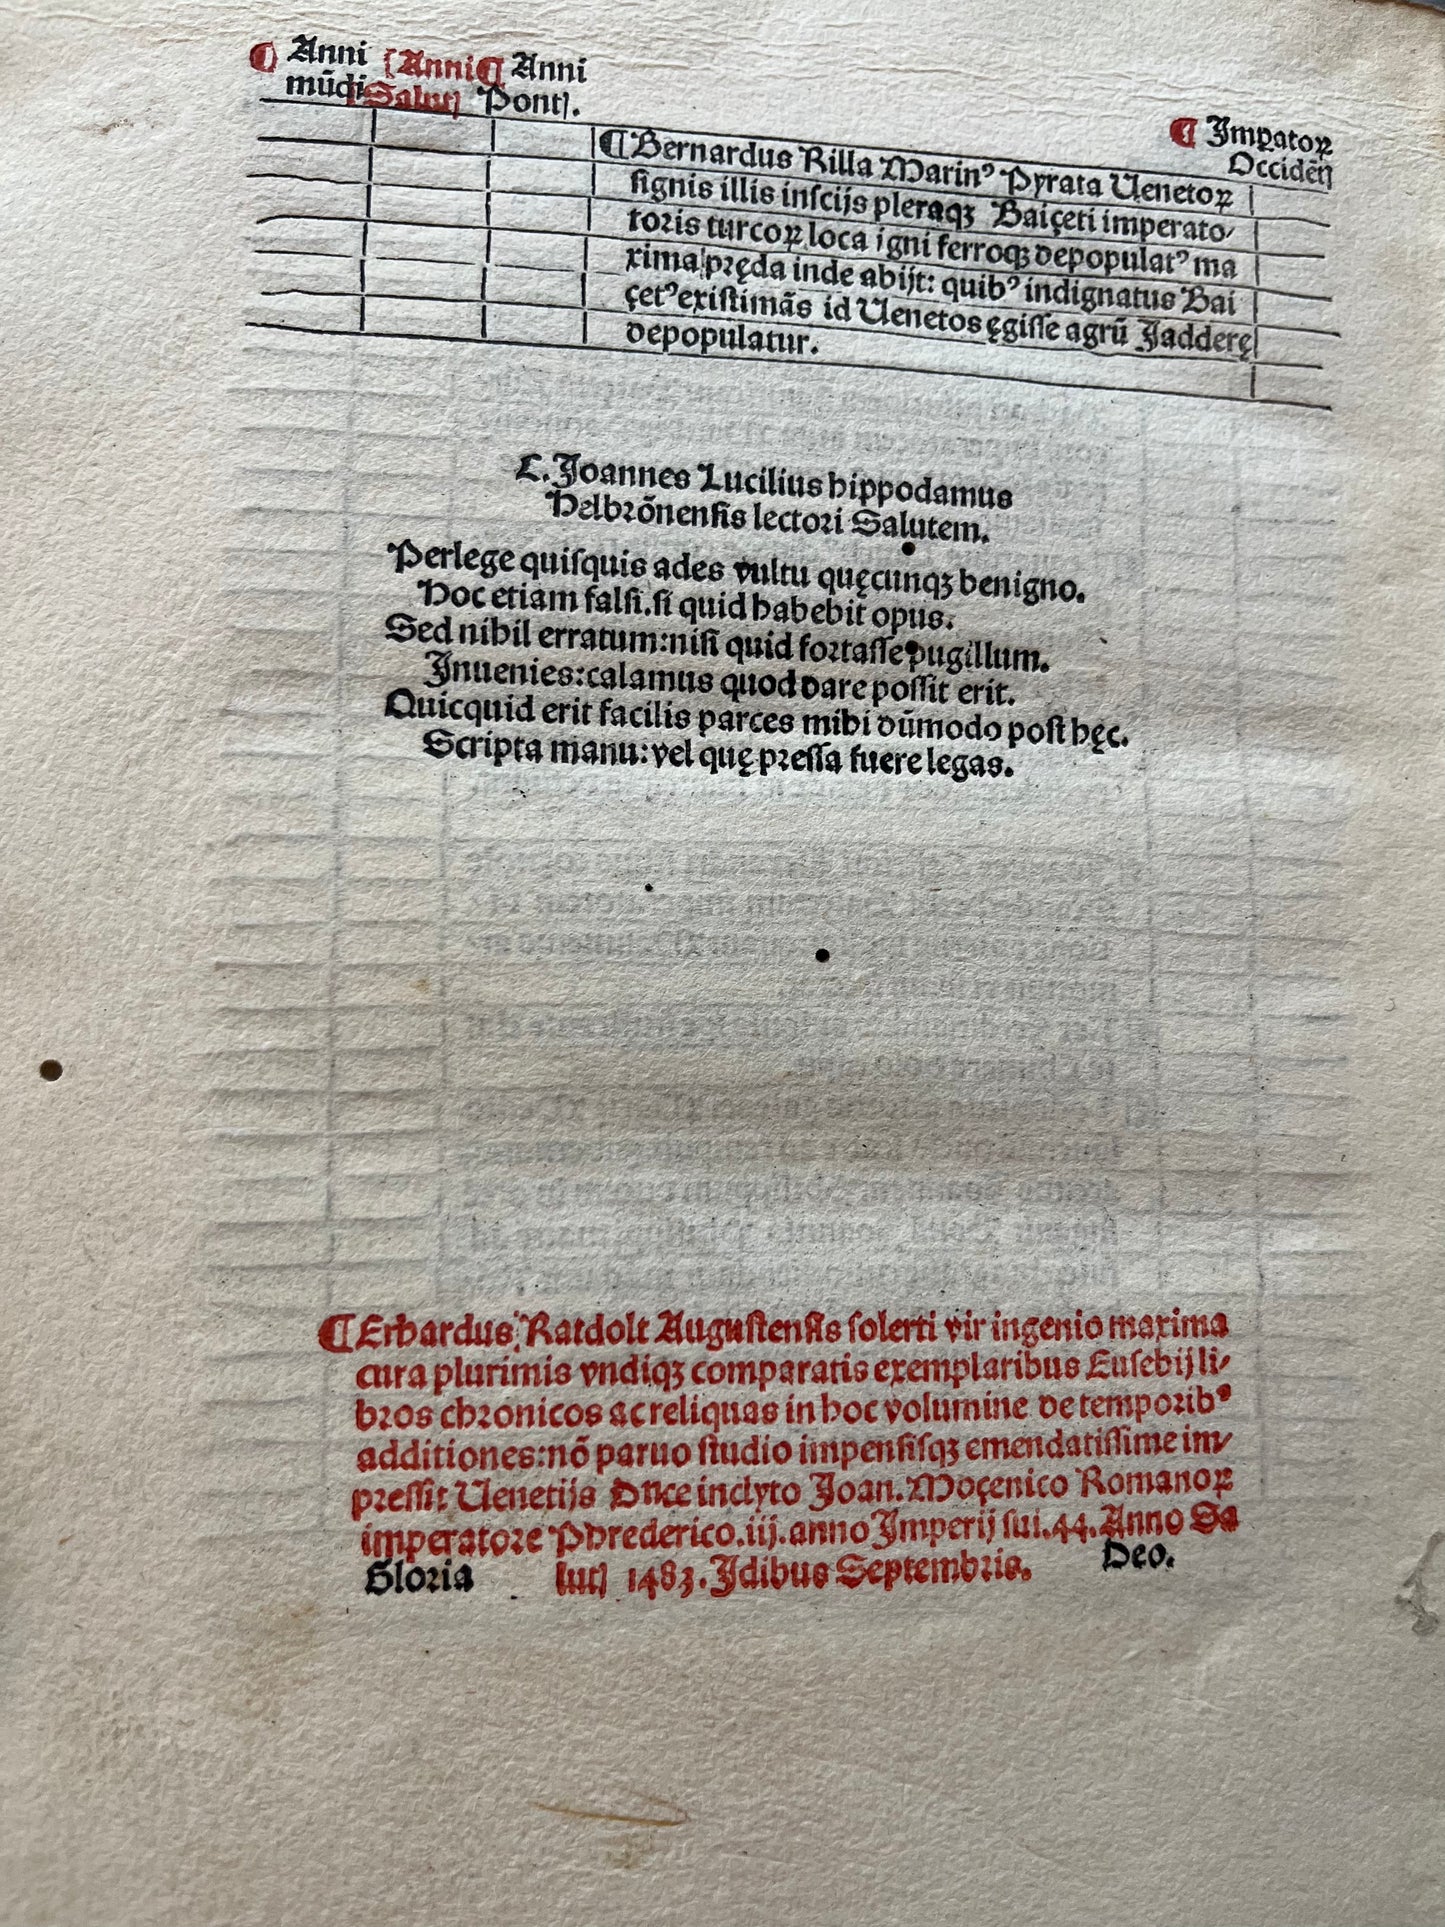 ¶ Anni ⁅Anni ¶ Anni
mūdi Salutꝭ Pontꝭ.
¶ Impatoꝝ
Occidētꝭ
¶ Bernardus Rilla Marinꝰ Pyrata Uenetoꝝ
ſignis illis inſcijs pleraqꝫ Baiçeti imperato⸗
toris turcoꝝ loca igni ferroqꝫ depopulatꝰ ma
xima pręda inde abijt: quibꝰ indignatus Bai
çetꝰ exiſtimãs id Uenetos ęgiſſe agrū Jadderę
depopulatur.
L. Joannes Lucilius hippodamus
Helbrõnenſis lectori Salutem.
Perlege quiſquis ades vultu quęcunqꝫ benigno.
Hoc etiam falſi. ſi quid habebit opus.
Sed nihil erratum: niſi quid fortaſſe pugillum.
Inuenies: calamus quod dare poſſit erit.
Quicquid erit facilis parces mihi dūmodo poſt hęc.
Scripta manu: vel quę preſſa fuere legas.
¶ Erhardus Ratdolt Auguſtenſis ſolerti vir ingenio maxima
cura plurimis vndiqꝫ comparatis exemplaribus Euſebij li⸗
bros chronicos ac reliquas in hoc volumine de temporibꝰ
additiones: nõ paruo ſtudio impenſiſqꝫ emendatiſſime im⸗
preſſit Uenetijs Duce inclyto Joan. Moçenico Romanoꝝ
imperatore Phrederico .iij. anno Imperij ſui. 44. Anno Sa
lutꝭ 1483. Idibus Septembris.
Gloria Deo.